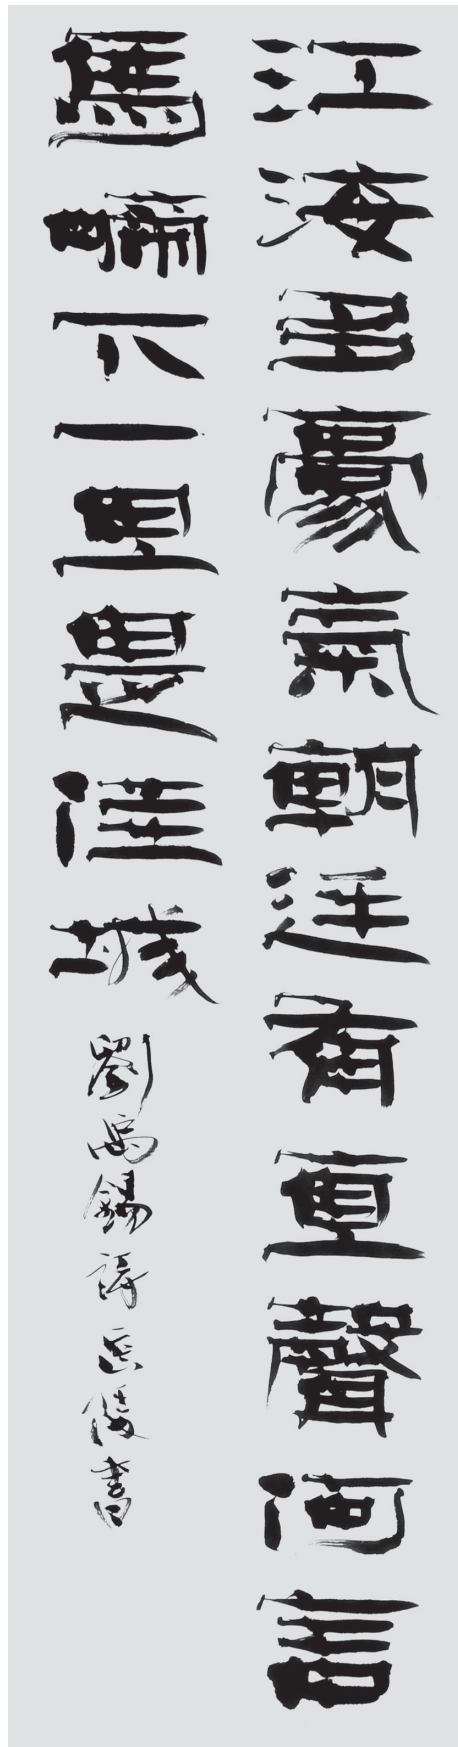 江海多豪氣朝廷有直聲何言
馬蹄下一旦是佳城
劉禹錫詩 書